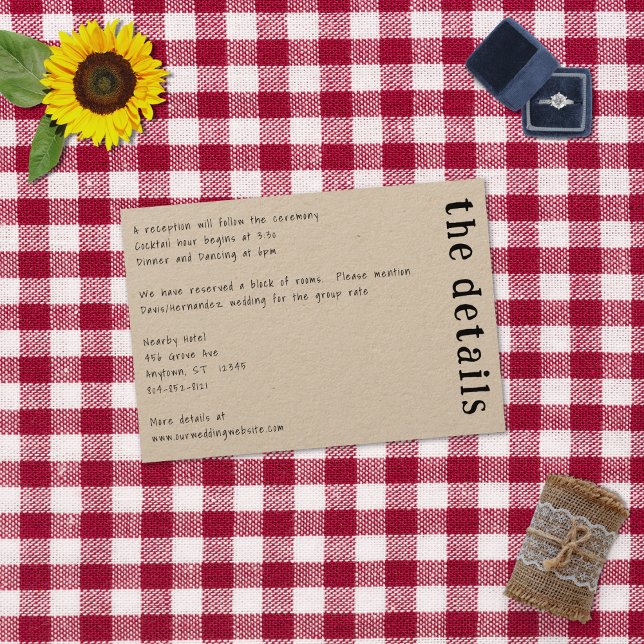 A reception will follow the ceremony
Cocktail hour begins at 3:30
Dinner and Dancing at 6pm
We have reserved a block of rooms. Please mention
Davis/Hernandez wedding for the group rate
Nearby Hotel
456 Grove Ave
Anytown, ST 12345
804-852-8121
More details at
www.ourweddingwebsite.com
the details